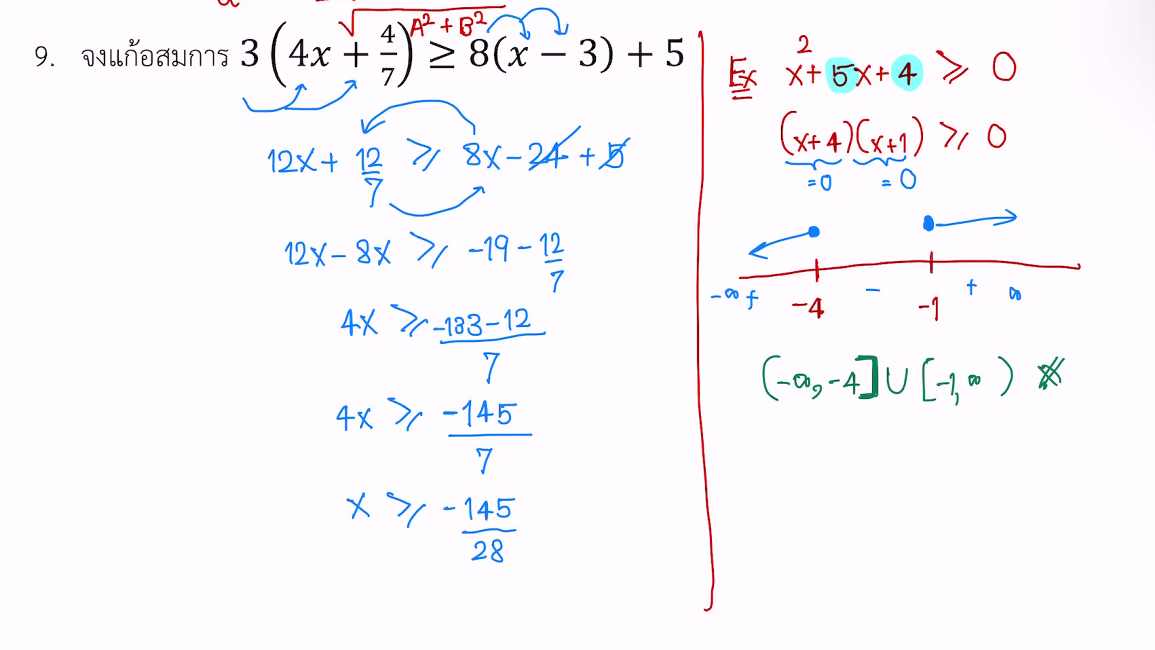 √A² + B²
9. จงแก้อสมการ 3(4x + 4/7) ≥ 8(x − 3) + 5
12x + 12/7 ≥ 8x − 24 + 5
12x − 8x ≥ -19 − 12/7
4x ≥ -133 − 12/7
4x ≥ -145/7
x ≥ -145/28
Ex x² + 5x + 4 ≥ 0
(x+4)(x+1) ≥ 0
=0 =0
-∞ + -4 − -1 + ∞
(-∞, -4] ∪ [-1, ∞)